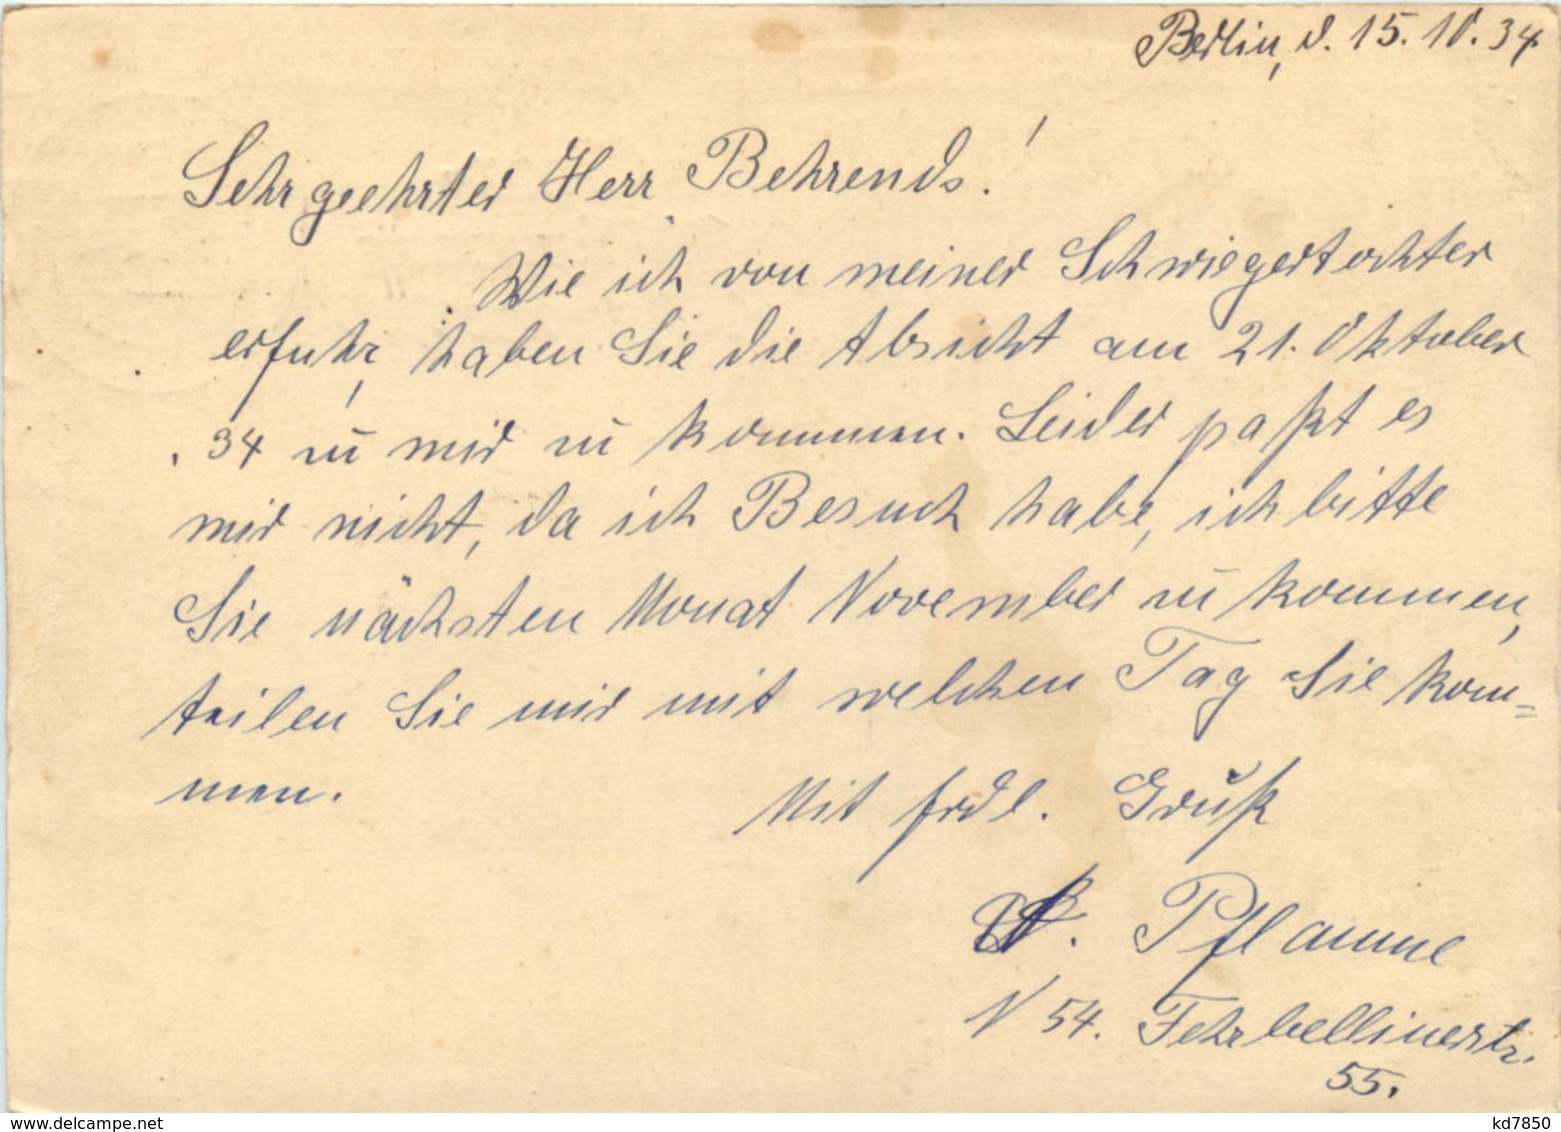 Berlin, d. 15.10.34.
Sehr geehrter Herr Behrends!
Wie ich von meiner Schwiegertochter
erfuhr, haben Sie die Absicht am 21. Oktober
34 zu mir zu kommen. Leider paßt es
mir nicht, da ich Besuch habe, ich bitte
Sie nächsten Monat November zu kommen,
teilen Sie mir mit welchen Tag Sie kom=
men.
Mit frdl. Gruß
Pflaume
N 54. Fehrbellinerstr.
55.
www.delcampe.net
kd7850